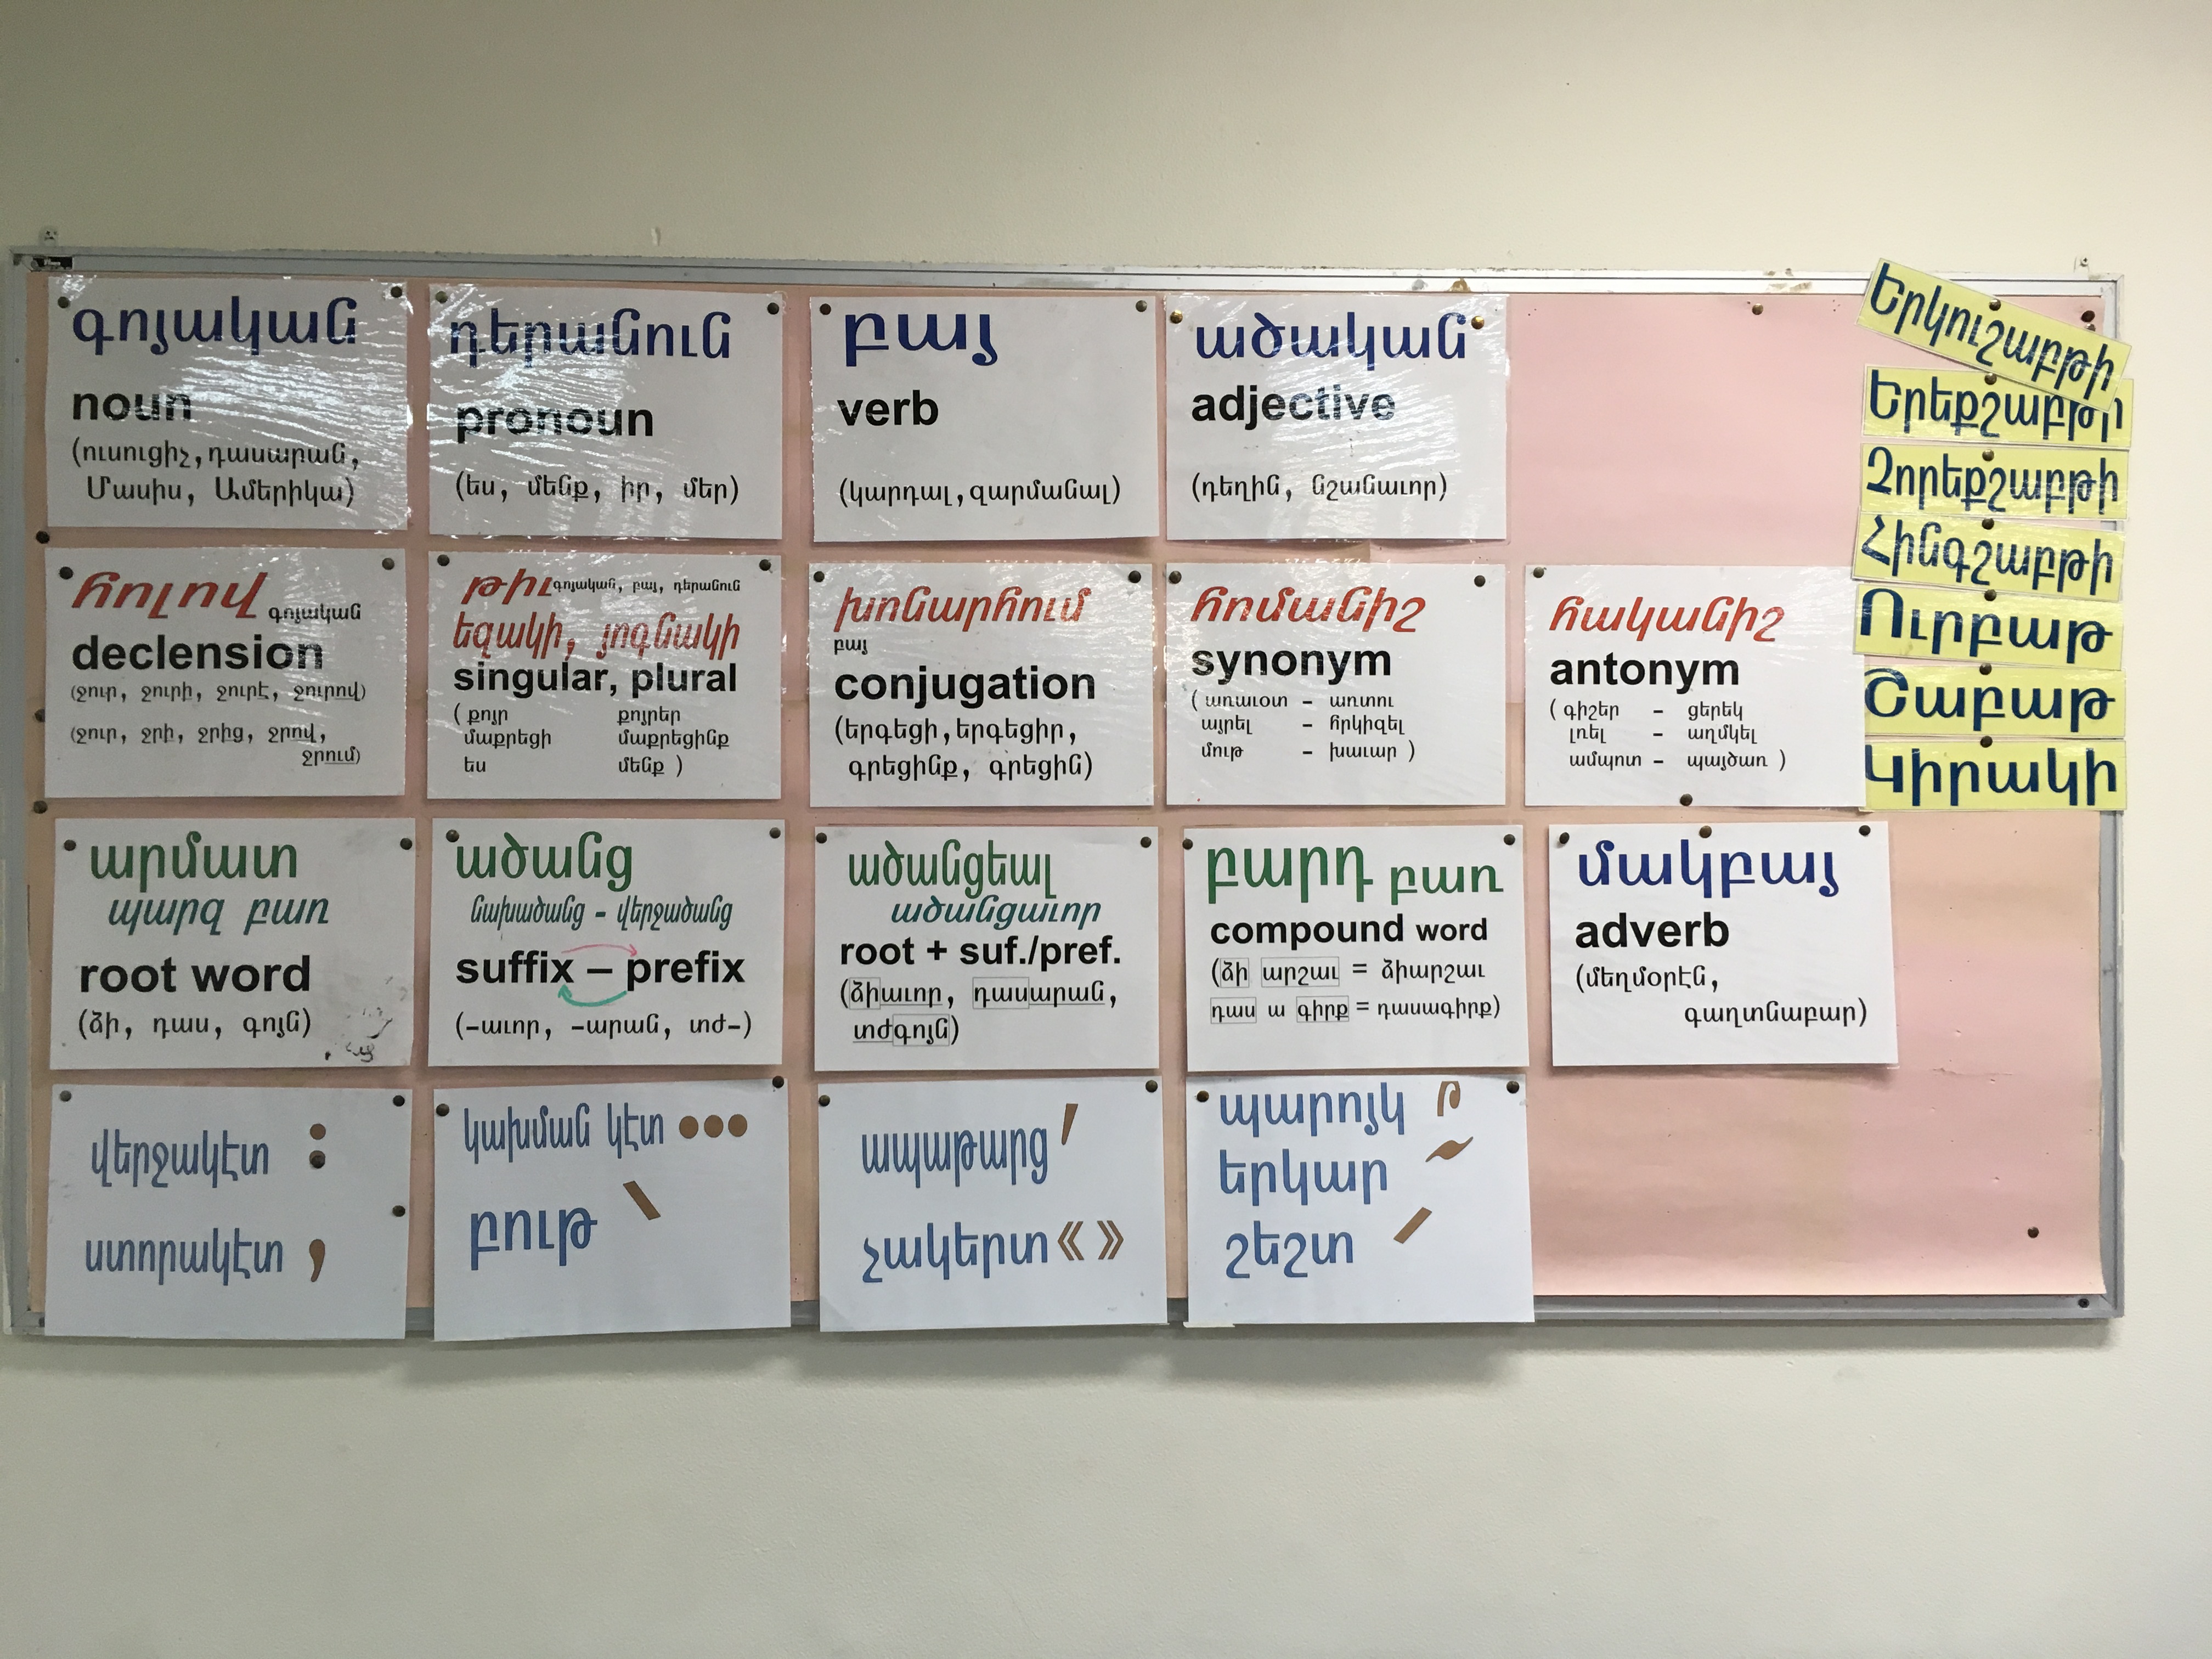 գոյական
noun
(ուսուցիչ, դասարան,
Մասիս, Ամերիկա)
դերանուն
pronoun
(ես, մենք, իր, մեր)
բայ
verb
(կարդալ, զարմանալ)
ածական
adjective
(դեղին, նշանաւոր)
հոլով գոյական
declension
(ջուր, ջուրի, ջուրէ, ջուրով)
(ջուր, ջրի, ջրից, ջրով,
ջրում)
թիւ գոյական, բայ, դերանուն
եզակի, յոգնակի
singular, plural
( քոյր քոյրեր
մաքրեցի մաքրեցինք
ես մենք )
խոնարհում
բայ
conjugation
(երգեցի, երգեցիր,
գրեցինք, գրեցին)
հոմանիշ
synonym
( առաւօտ - առտու
այրել - հրկիզել
մութ - խաւար )
հականիշ
antonym
( գիշեր - ցերեկ
լռել - աղմկել
ամպոտ - պայծառ )
արմատ
պարզ բառ
root word
(ձի, դաս, գոյն)
ածանց
նախածանց - վերջածանց
suffix – prefix
(-աւոր, -արան, տժ-)
ածանցեալ
ածանցաւոր
root + suf./pref.
(ձիաւոր, դասարան,
տժգոյն)
բարդ բառ
compound word
(ձի արշաւ = ձիարշաւ
դաս ա գիրք = դասագիրք)
մակբայ
adverb
(մեղմօրէն,
գաղտնաբար)
վերջակէտ :
ստորակէտ ,
կախման կէտ ...
բութ ՝
ապաթարց ՚
չակերտ « »
պարոյկ ՞
երկար ՜
շեշտ ՛
Երկուշաբթի
Երեքշաբթի
Չորեքշաբթի
Հինգշաբթի
Ուրբաթ
Շաբաթ
Կիրակի